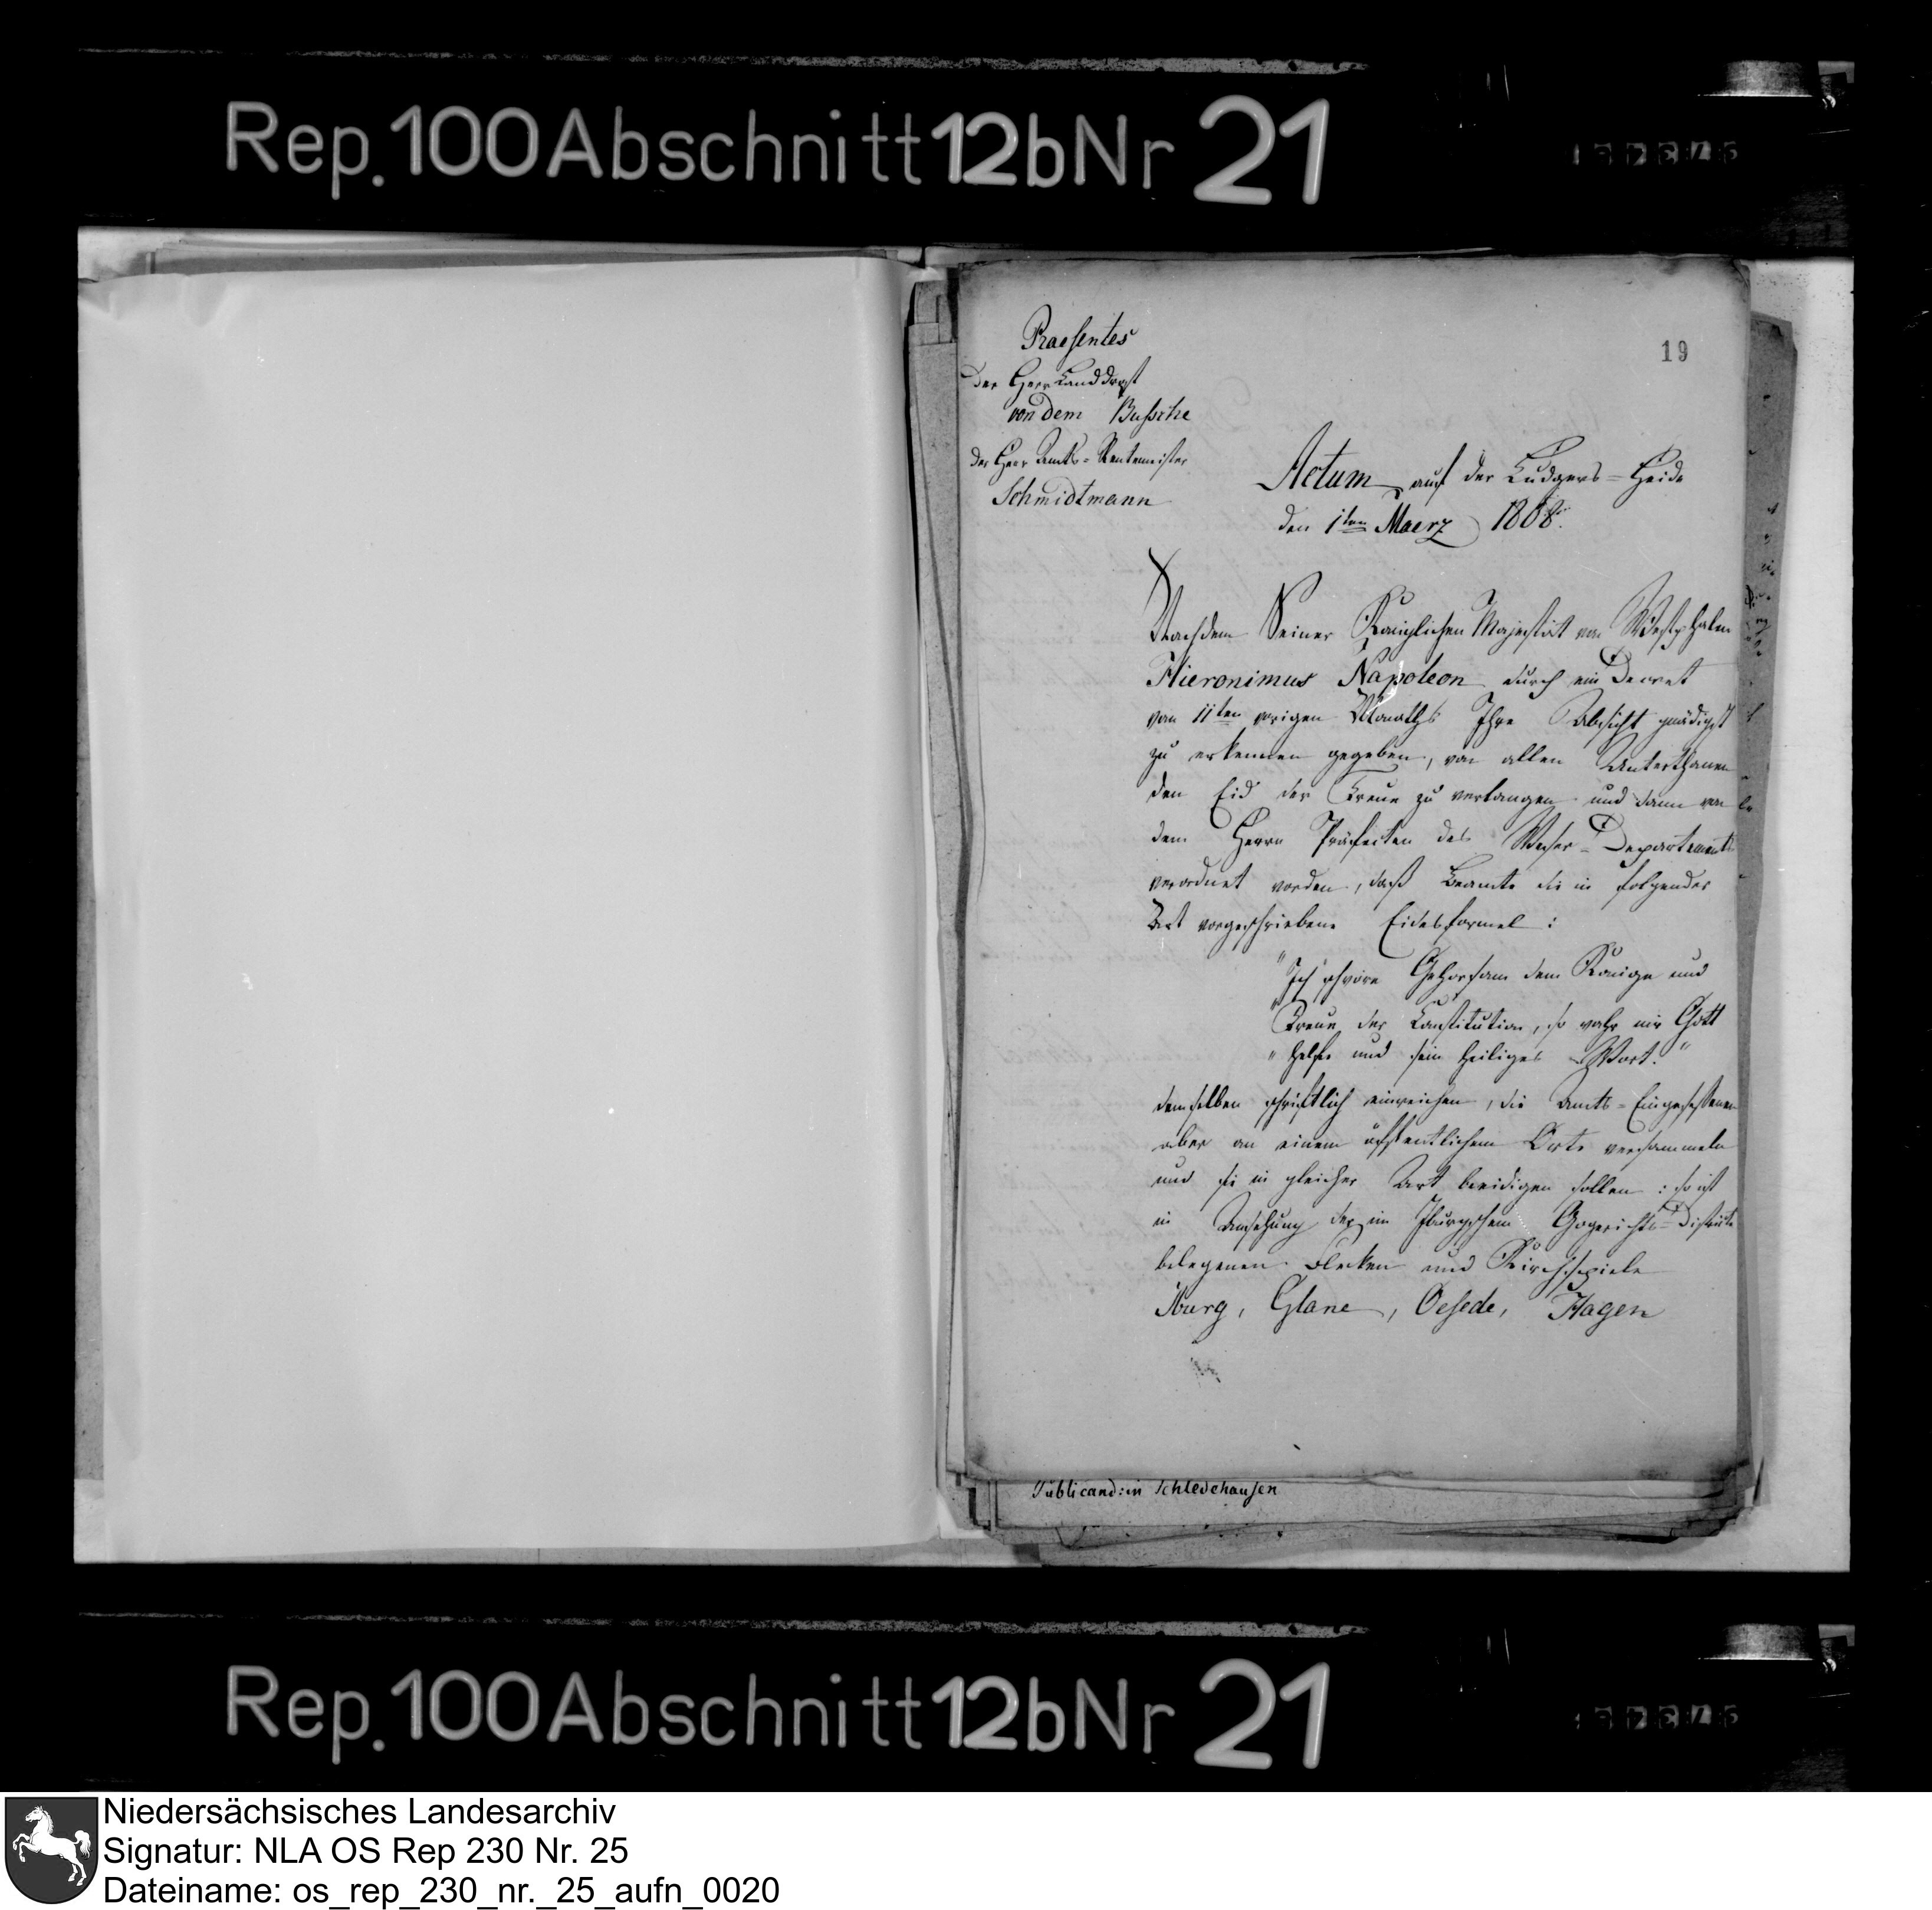 Rep. 100 Abschnitt 12b Nr 21
19
Praesentes
Der Herr Landdrost
von dem Bussche
der Herr Amts-Rentemeister
Schmidtmann
Actum auf der Ludgers-Heide
den 1ten Maerz 1808.
Nachdem Seiner Königlichen Majestät von Westphalen
Hieronimus Napoleon durch ein Decret
vom 11ten vorigen Monaths Ihre Absicht gnädigst
zu erkennen gegeben, von allen Unterthanen
den Eid der Treue zu verlangen und dann von
dem Herrn Präfecten des Weser-Departements
verordnet worden, daß Beamte die in folgender
Art vorgeschriebene Eidesformel:
"Ich schwöre Gehorsam dem Könige und
"Treue der Constitution, so wahr mir Gott
"helfe und sein heiliges Wort."
demselben schriftlich einreichen, die Amts-Eingesessenen
aber an einem öffentlichem Orte versammeln
und sie in gleicher Art beeidigen sollen: so ist
in Ansehung der im Iburgschem Gogerichts-Districte
belegenen Flecken und Kirchspiele
Iburg, Glane, Oesede, Hagen
Publicand: in Schledehausen
Rep. 100 Abschnitt 12b Nr 21
Niedersächsisches Landesarchiv
Signatur: NLA OS Rep 230 Nr. 25
Dateiname: os_rep_230_nr._25_aufn_0020